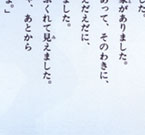 した。
家がありました。
あって、そのわきに、
えだえだに、
ました。
ふくれて見えました。
や、あとから
よ。」